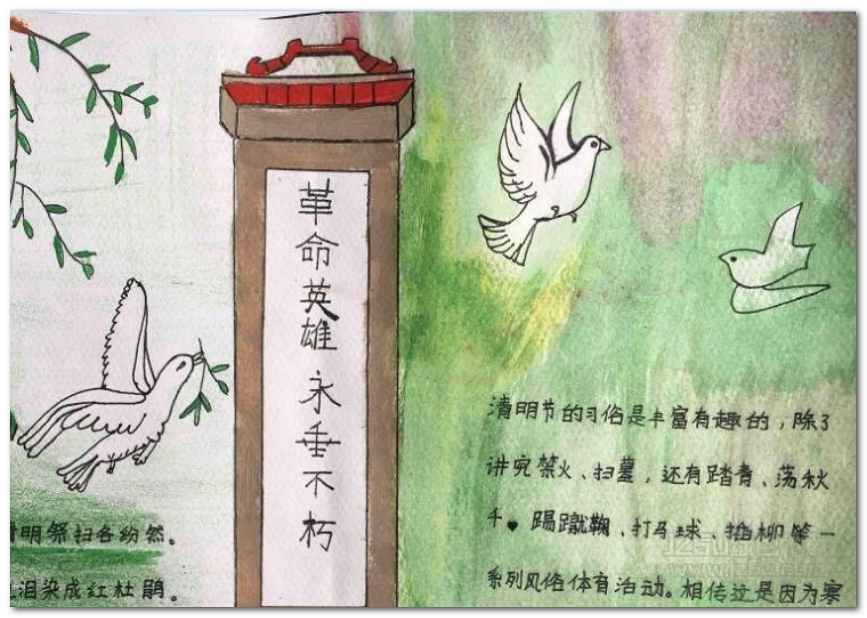 革命英雄永垂不朽
明祭扫各纷然。
泪染成红杜鹃。
清明节的习俗是丰富有趣的，除了
讲究禁火、扫墓，还有踏青、荡秋
千。踢蹴鞠、打马球、插柳等一
系列风俗体育活动。相传这是因为寒